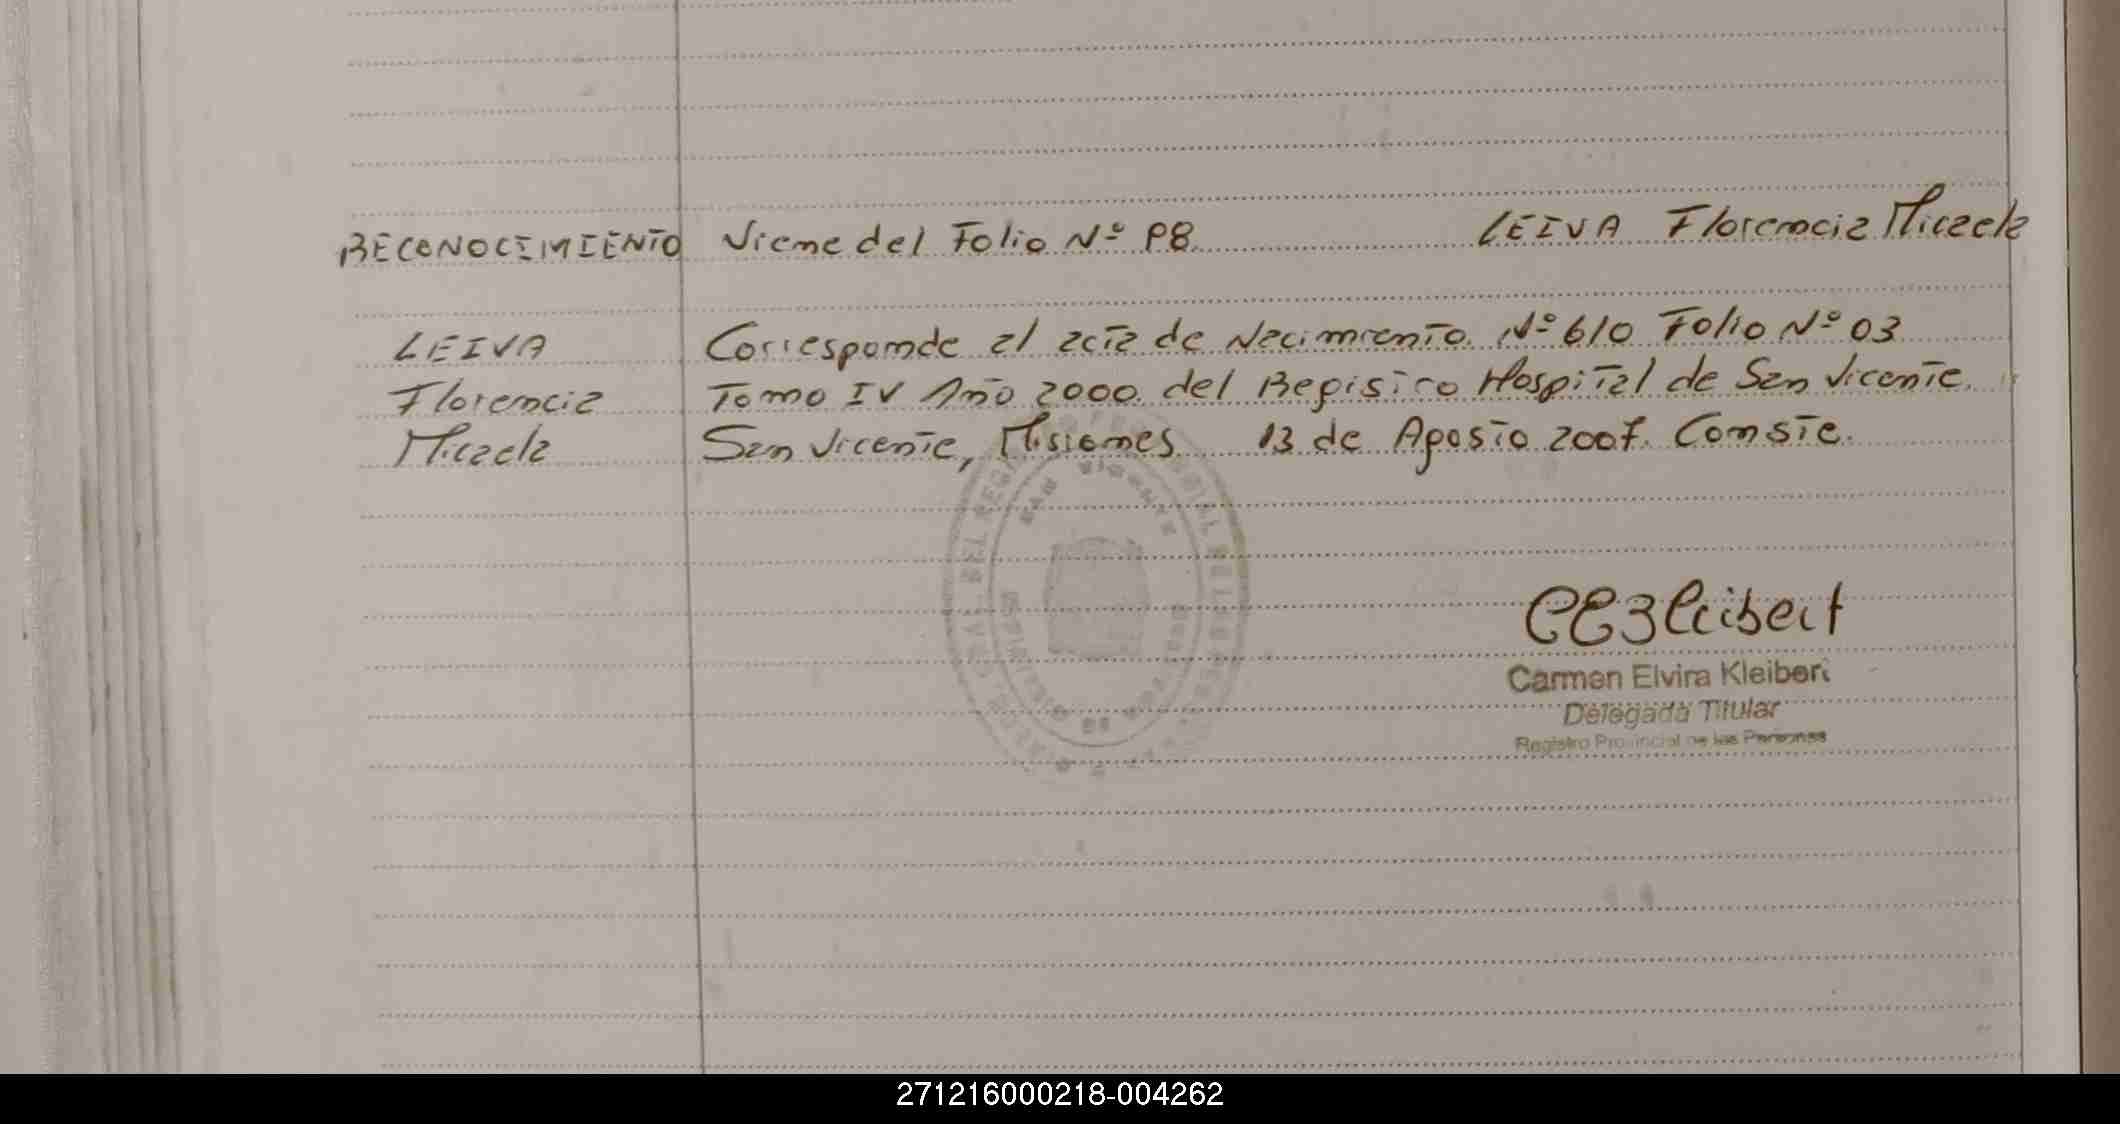 RECONOCIMIENTO Viene del Folio Nº 98 LEIVA Florencia Micaela
LEIVA Corresponde al acta de Nacimiento Nº 610 Folio Nº 03
Florencia Tomo IV Año 2000 del Registro Hospital de San Vicente.
Micaela San Vicente, Misiones 13 de Agosto 2007. Conste.
SAN VICENTE
Carmen Elvira Kleibert
Delegada Titular
Registro Provincial de las Personas
271216000218-004262